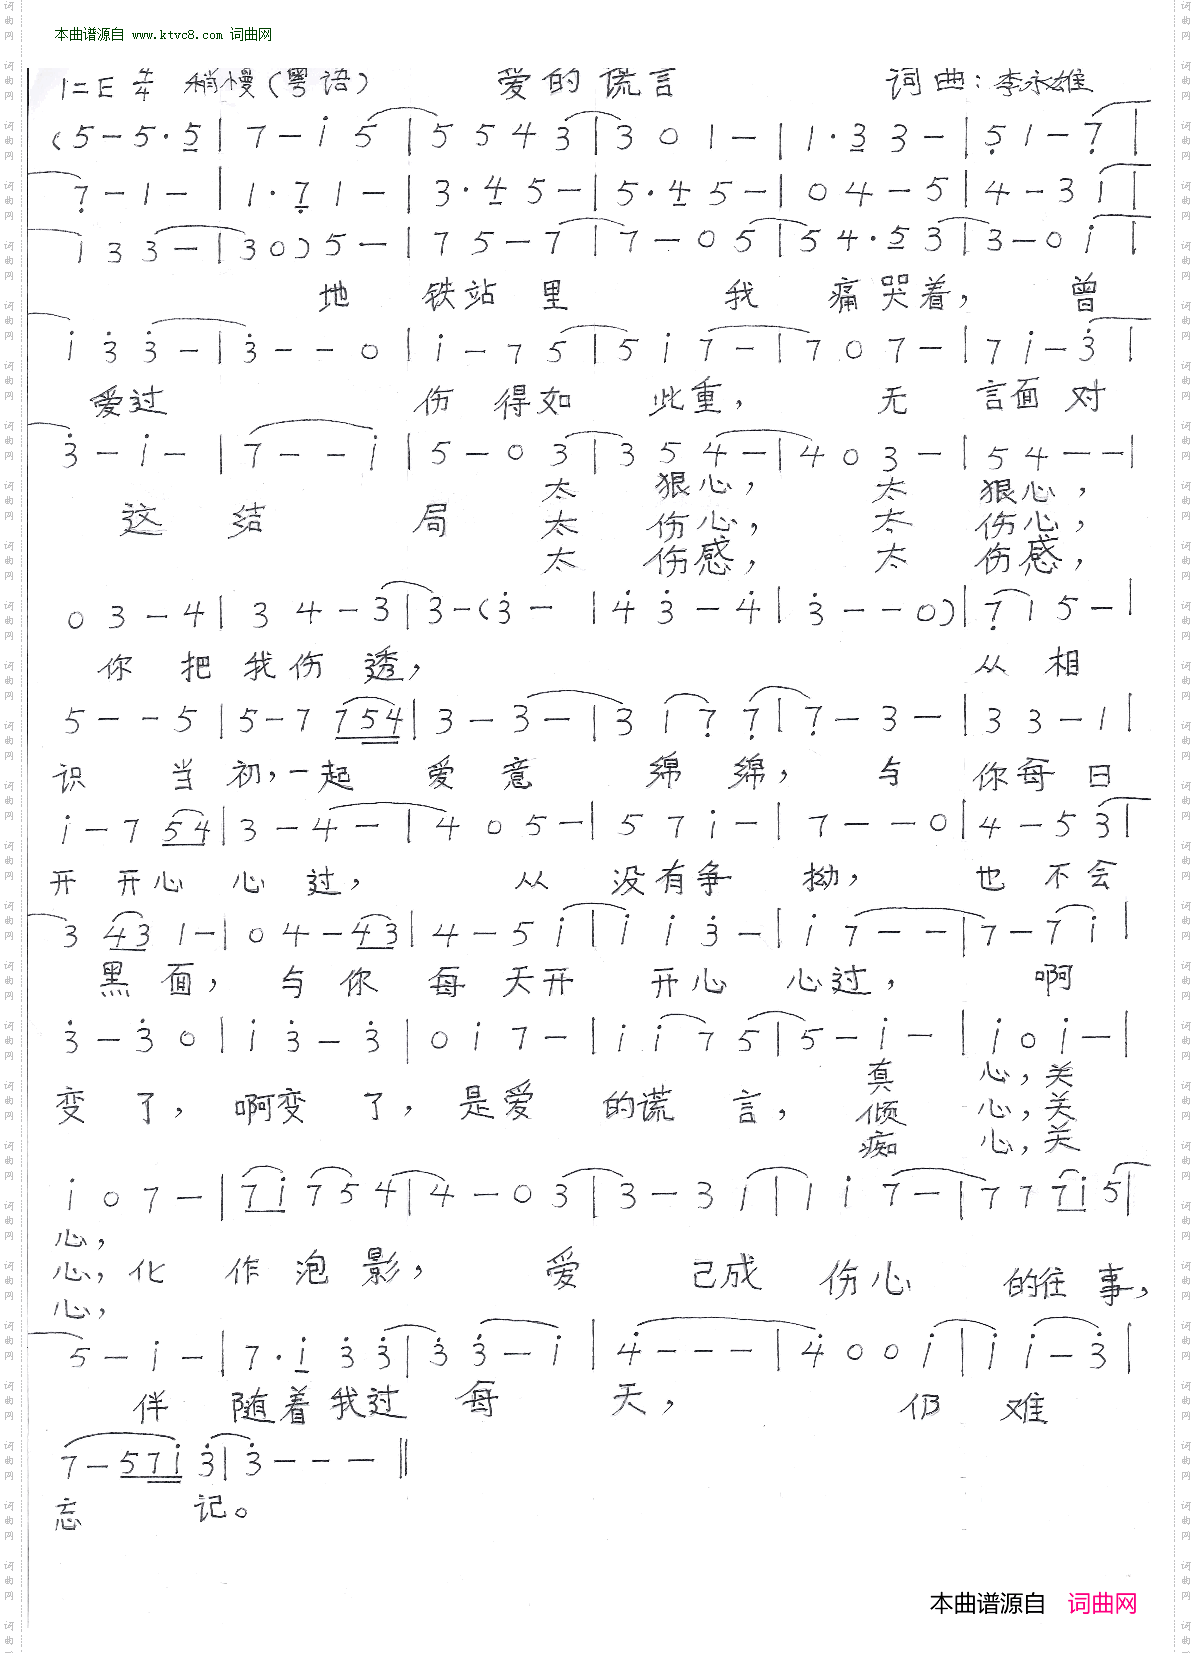 本曲谱源自 www.ktvc8.com 词曲网
1=E 4/4 稍慢(粤语) 爱的谎言 词曲:李永雄
(5-5·5|7-i 5|5 5 4 3|3 0 1-|1·3 3-|5 1-7|
7-1-|1·7 1-|3·4 5-|5·4 5-|0 4-5|4-3 i|
i 3 3-|3 0) 5-|7 5-7|7-0 5|5 4·5 3|3-0 i|
地 铁站 里 我 痛哭着, 曾
i 3 3-|3--0|i-7 5|5 i 7-|7 0 7-|7 i-3|
爱过 伤 得如 此重, 无 言面 对
3-i-|7--i|5-0 3|3 5 4-|4 0 3-|5 4--|
太 狠心, 太 狠心,
这 结 局 太 伤心, 太 伤心,
太 伤感, 太 伤感,
0 3-4|3 4-3|3-(3-|4 3-4|3--0)|7 1 5-|
你 把 我伤 透, 从 相
5--5|5-7 7 5 4|3-3-|3 i 7 7|7-3-|3 3-1|
识 当 初,一起 爱 意 绵 绵, 与 你每 日
i-7 5 4|3-4-|4 0 5-|5 7 i-|7--0|4-5 3|
开 开心 心 过, 从 没有争 拗, 也 不会
3 4 3 1-|0 4-4 3|4-5 i|i i 3-|i 7--|7-7 i|
黑 面, 与 你 每 天开 开心 心过, 啊
3-3 0|i 3-3|0 i 7-|i i 7 5|5-i-|i 0 i-|
真 心,关
变 了, 啊变 了, 是爱 的谎 言, 倾 心,关
痴 心,关
i 0 7-|7 i 7 5 4|4-0 3|3-3 i|i i 7-|7 7 7 i 5|
心,
心,化 作 泡 影, 爱 己成 伤心 的往 事,
心,
5-i-|7·i 3 3|3 3-i|4---|4 0 0 i|i i-3|
伴 随着 我过 每 天, 仍 难
7-5 7 i 3|3---‖
忘 记。
本曲谱源自 词曲网